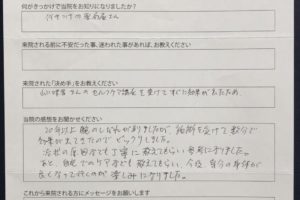 何がきっかけで当院をお知りになりましたか?
行きつけの電器屋さん
来院される前に不安だった事、迷われた事があれば、お教えください
来院された「決め手」をお教えください
さんのセルフケア講座を受けてすぐに効果が出たため。
当院の感想をお聞かせください
20年以上腕のしびれがありましたが、施術を受けて数分で
効果が出てきたのでビックリしました。
しびれの原因なども丁寧に教えてもらい参考になりました。
あと、自宅でのケアなども教えてもらい、今後、自分の身体が
良くなって行くのが楽しみになりました。
これから来院される方にメッセージをお願いします